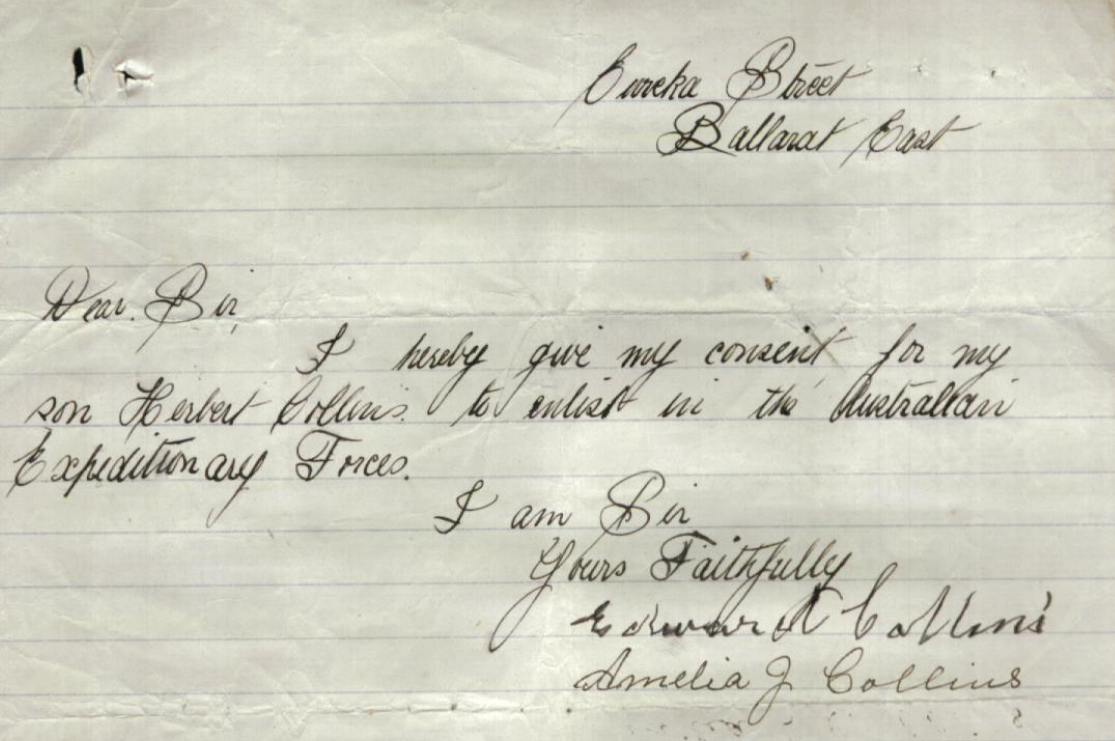 Eureka Street
Ballarat East
Dear. Sir,
I hereby give my consent for my
son Herbert Collins. to enlist in the Australian
Expeditionary Forces.
I am Sir
Yours Faithfully
Edward Collins
Amelia J Collins